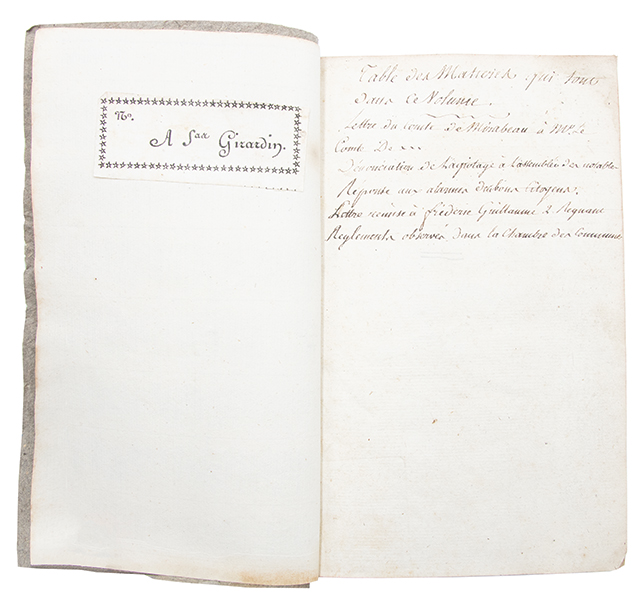 No.
A Stan Girardin.
Table des Matieres qui sont
dans ce Volume.
Lettre du comte de Mirabeau à Mr. Le
Comte De ---
Dénonciation de L'agiotage à L'assemblée des notables
Réponse aux alarmes des bons Citoyens,
Lettre remise à fréderic Guillaume 2 Regnant
Reglements observés dans la Chambre des Communes